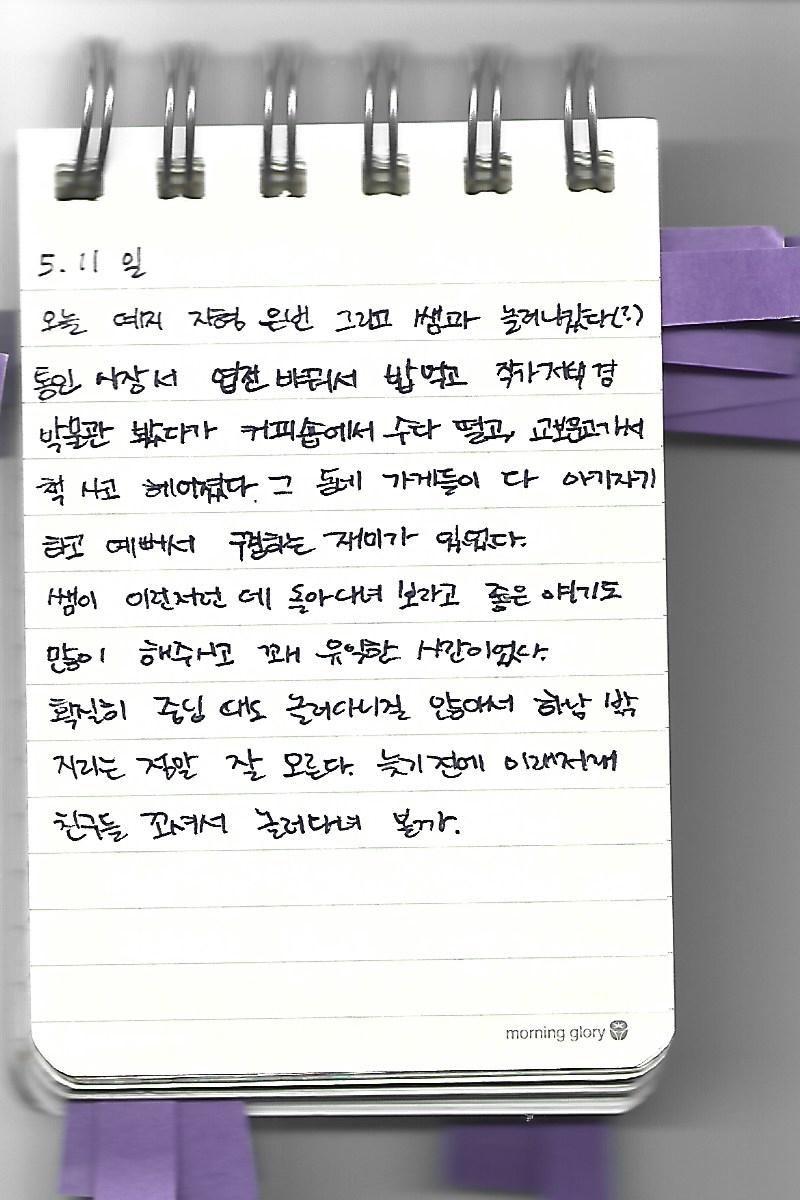 5. 11 일
오늘 예지 지형 은빈 그리고 쌤과 놀러나갔다(?)
통인 시장서 엽전 바꿔서 밥 먹고 작가저택 겸
박물관 봤다가 커피숍에서 수다 떨고, 교보문고가서
책 사고 헤어졌다. 그 동네 가게들이 다 아기자기
하고 예뻐서 구경하는 재미가 있었다.
쌤이 이런저런 데 돌아다녀 보라고 좋은 얘기도
많이 해주시고 꽤 유익한 시간이었다.
확실히 중딩 때도 놀러다니질 않아서 하남 밖
지리는 정말 잘 모른다. 늦기 전에 이래저래
친구들 꼬셔서 놀러다녀 볼까.
morning glory